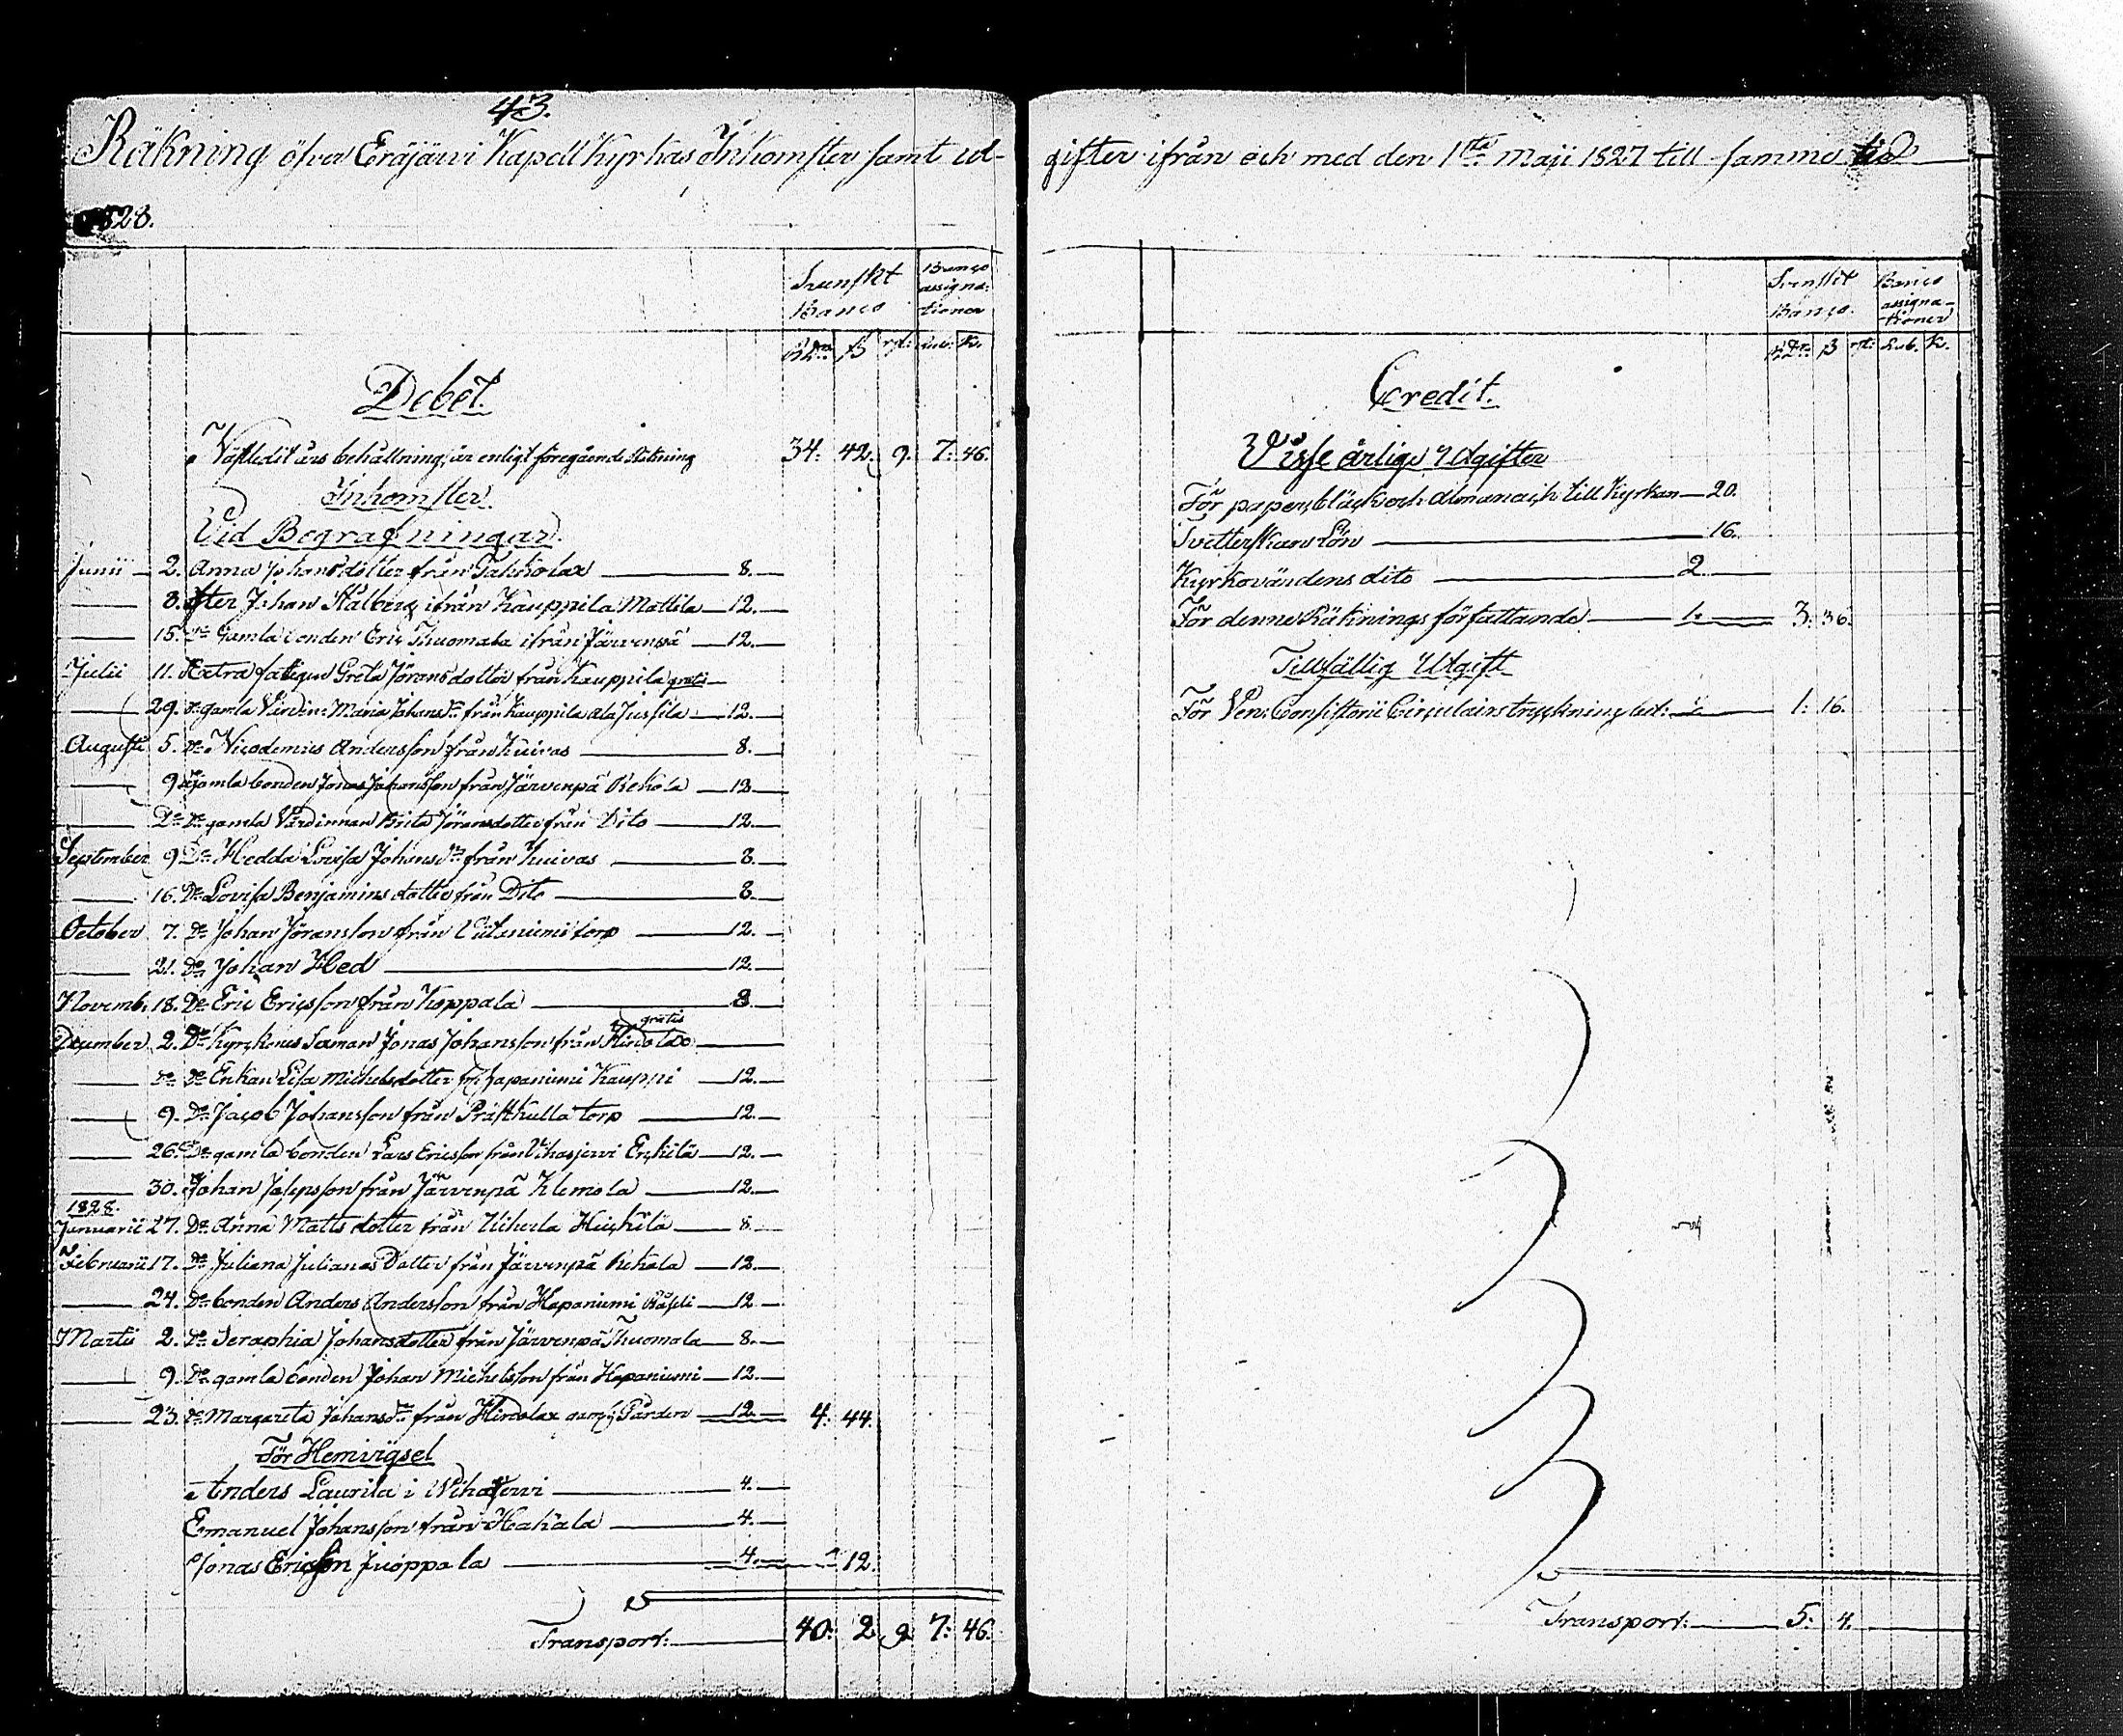 43.
Räkning öfver Eräjärvi Kapell Kyrkas Inkomster samt ut-
1828.
Svenskt Banco
Banco assigna-tioner
RDr. ß rst: Rub: K.
Debet.
Visstledit års behållning, är enligt föregående Räkning 34: 42. 9. 7: 46.
Inkomster.
Vid Begrafningar.
Junii 2. Anna Johansdotter från 8.
8. efter Johan Stålberg ifrån Kauppila Mattila 12.
15. Do Gamla bonden Eric Thuomala ifrån Järvenpä 12.
Julii 11. fatigus Greta Jöransdotter från Kauppila gratis
29. Do gamla Värdin: Maria Johans dr från Kauppila ala Jussila 12.
Augusti 5. Do Nicodemus Andersson från Kuivas 8.
9. Do Gamla bonden Jonas Johansson från Järvenpä Rekola 12
Do Do gamla Värdinnan Brita Jöransdotter från Dito 12.
September 9 Do Hedda Lovisa Johans dr från Kuivas 8.
16. Do Lovisa Benjamins dotter från Dito 8.
October 7. Do Johan Jöransson från torp 12.
21. Do Johan Hed 12.
Novemb. 18. Do Eric Ericsson från Koppala 8.
December 2. Do Jonas Johansson från Hirvolax gratis
Do Do Enkan Lisa Michelsdotter fr: Hapaniemi Kauppi 12.
9. Do Jacob Johansson från Prästkulla torp 12.
26. Do gamla bonden Lars Ericsson från Vihasjervi Erkilä 12.
30. Johan Josepsson från Järvenpä Klemola 12.
1828.
Januarii 27. Do Anna Matts dotter från Uiherla Heickilä 8
Februarii 17. Do Juliana Julianas Dotter från Järvenpä Rekola 12.
24. Do bonden Anders Andersson från Hapaniemi 12
Martii 2. Do Seraphia Johansdotter från Järvenpä Thuomala 8.
9. Do gamla bonden Johan Michelsson från Hapaniemi 12.
23. Do Margareta Johans dr från Hirvolax Gården 12. 4: 44.
För Hemvigsel
Anders Laurila i Vihasjervi 4.
Emanuel Johansson från Hakala 4.
Jonas Ericsson Juoppala 4. 12.
Transport: 40: 2 9 7: 46.
gifter ifrån och med den 1sta Maji 1827 till samme tid
Svenskt Banco.
Banco assigna-tioner
RDr. ß rst: Rub. K.
Credit.
Visse årlige Utgifter
För papper, bläck och Almanach till Kyrkan 20.
Tvetterskans Lön 16.
Kyrkovärdens dito 2
För denne Räknings författande 1. 3: 36.
Tillfällig Utgift
För Ven: Consistorii Circulairs tryckning 1: 16.
Transport: 5: 4.